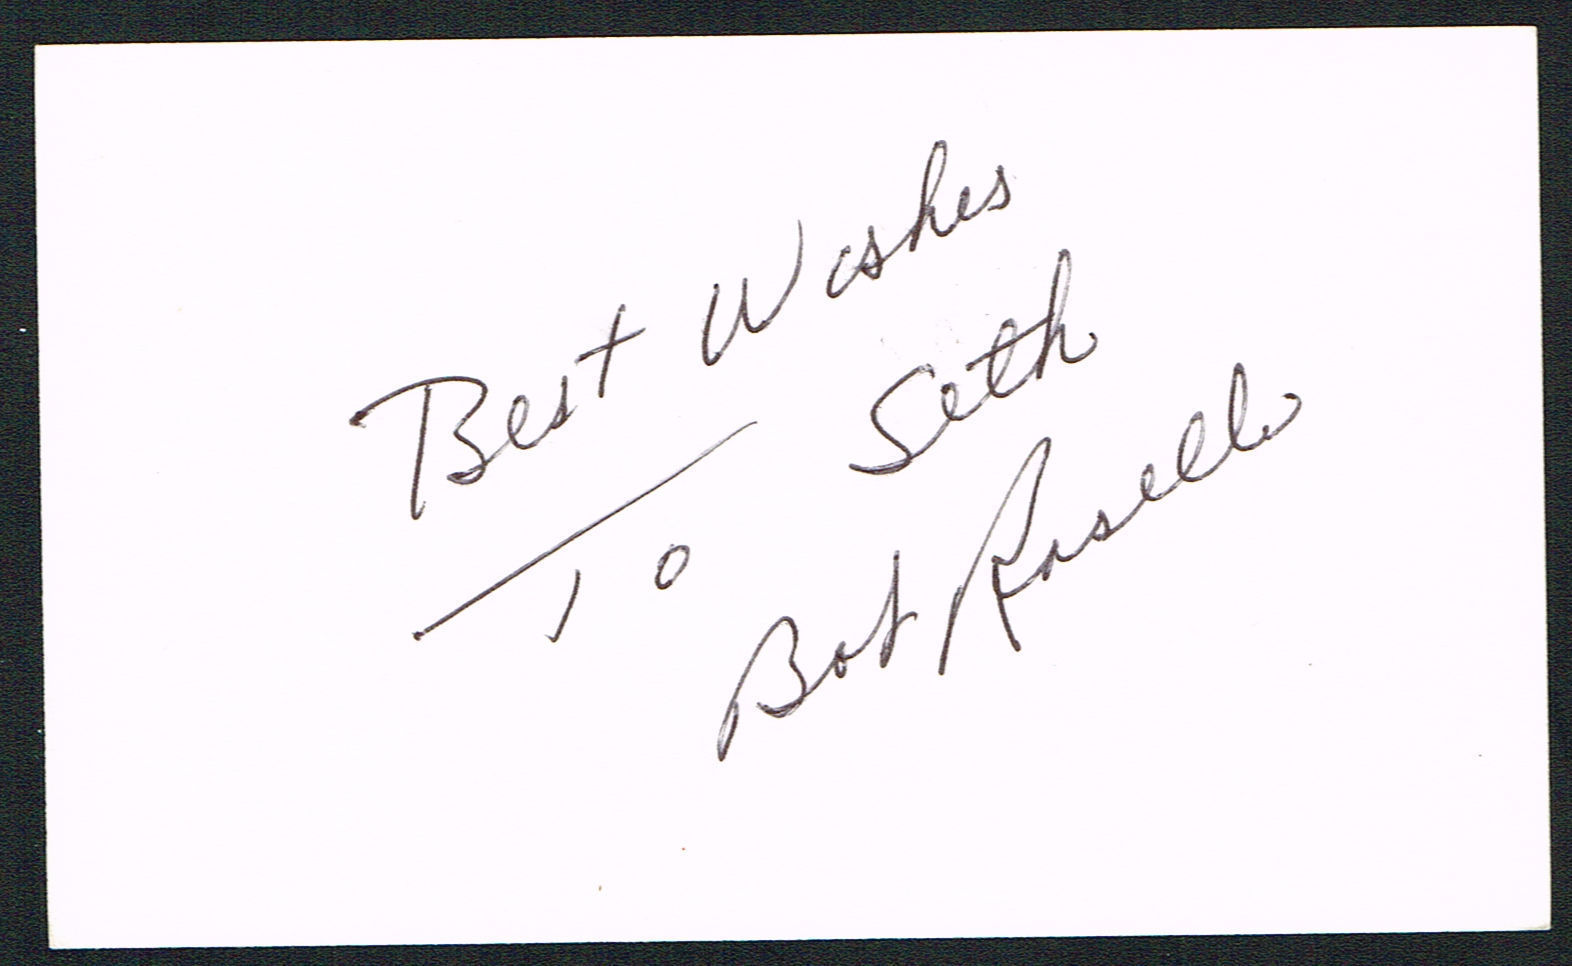 Best Wishes
To Seth
Bob Rosello